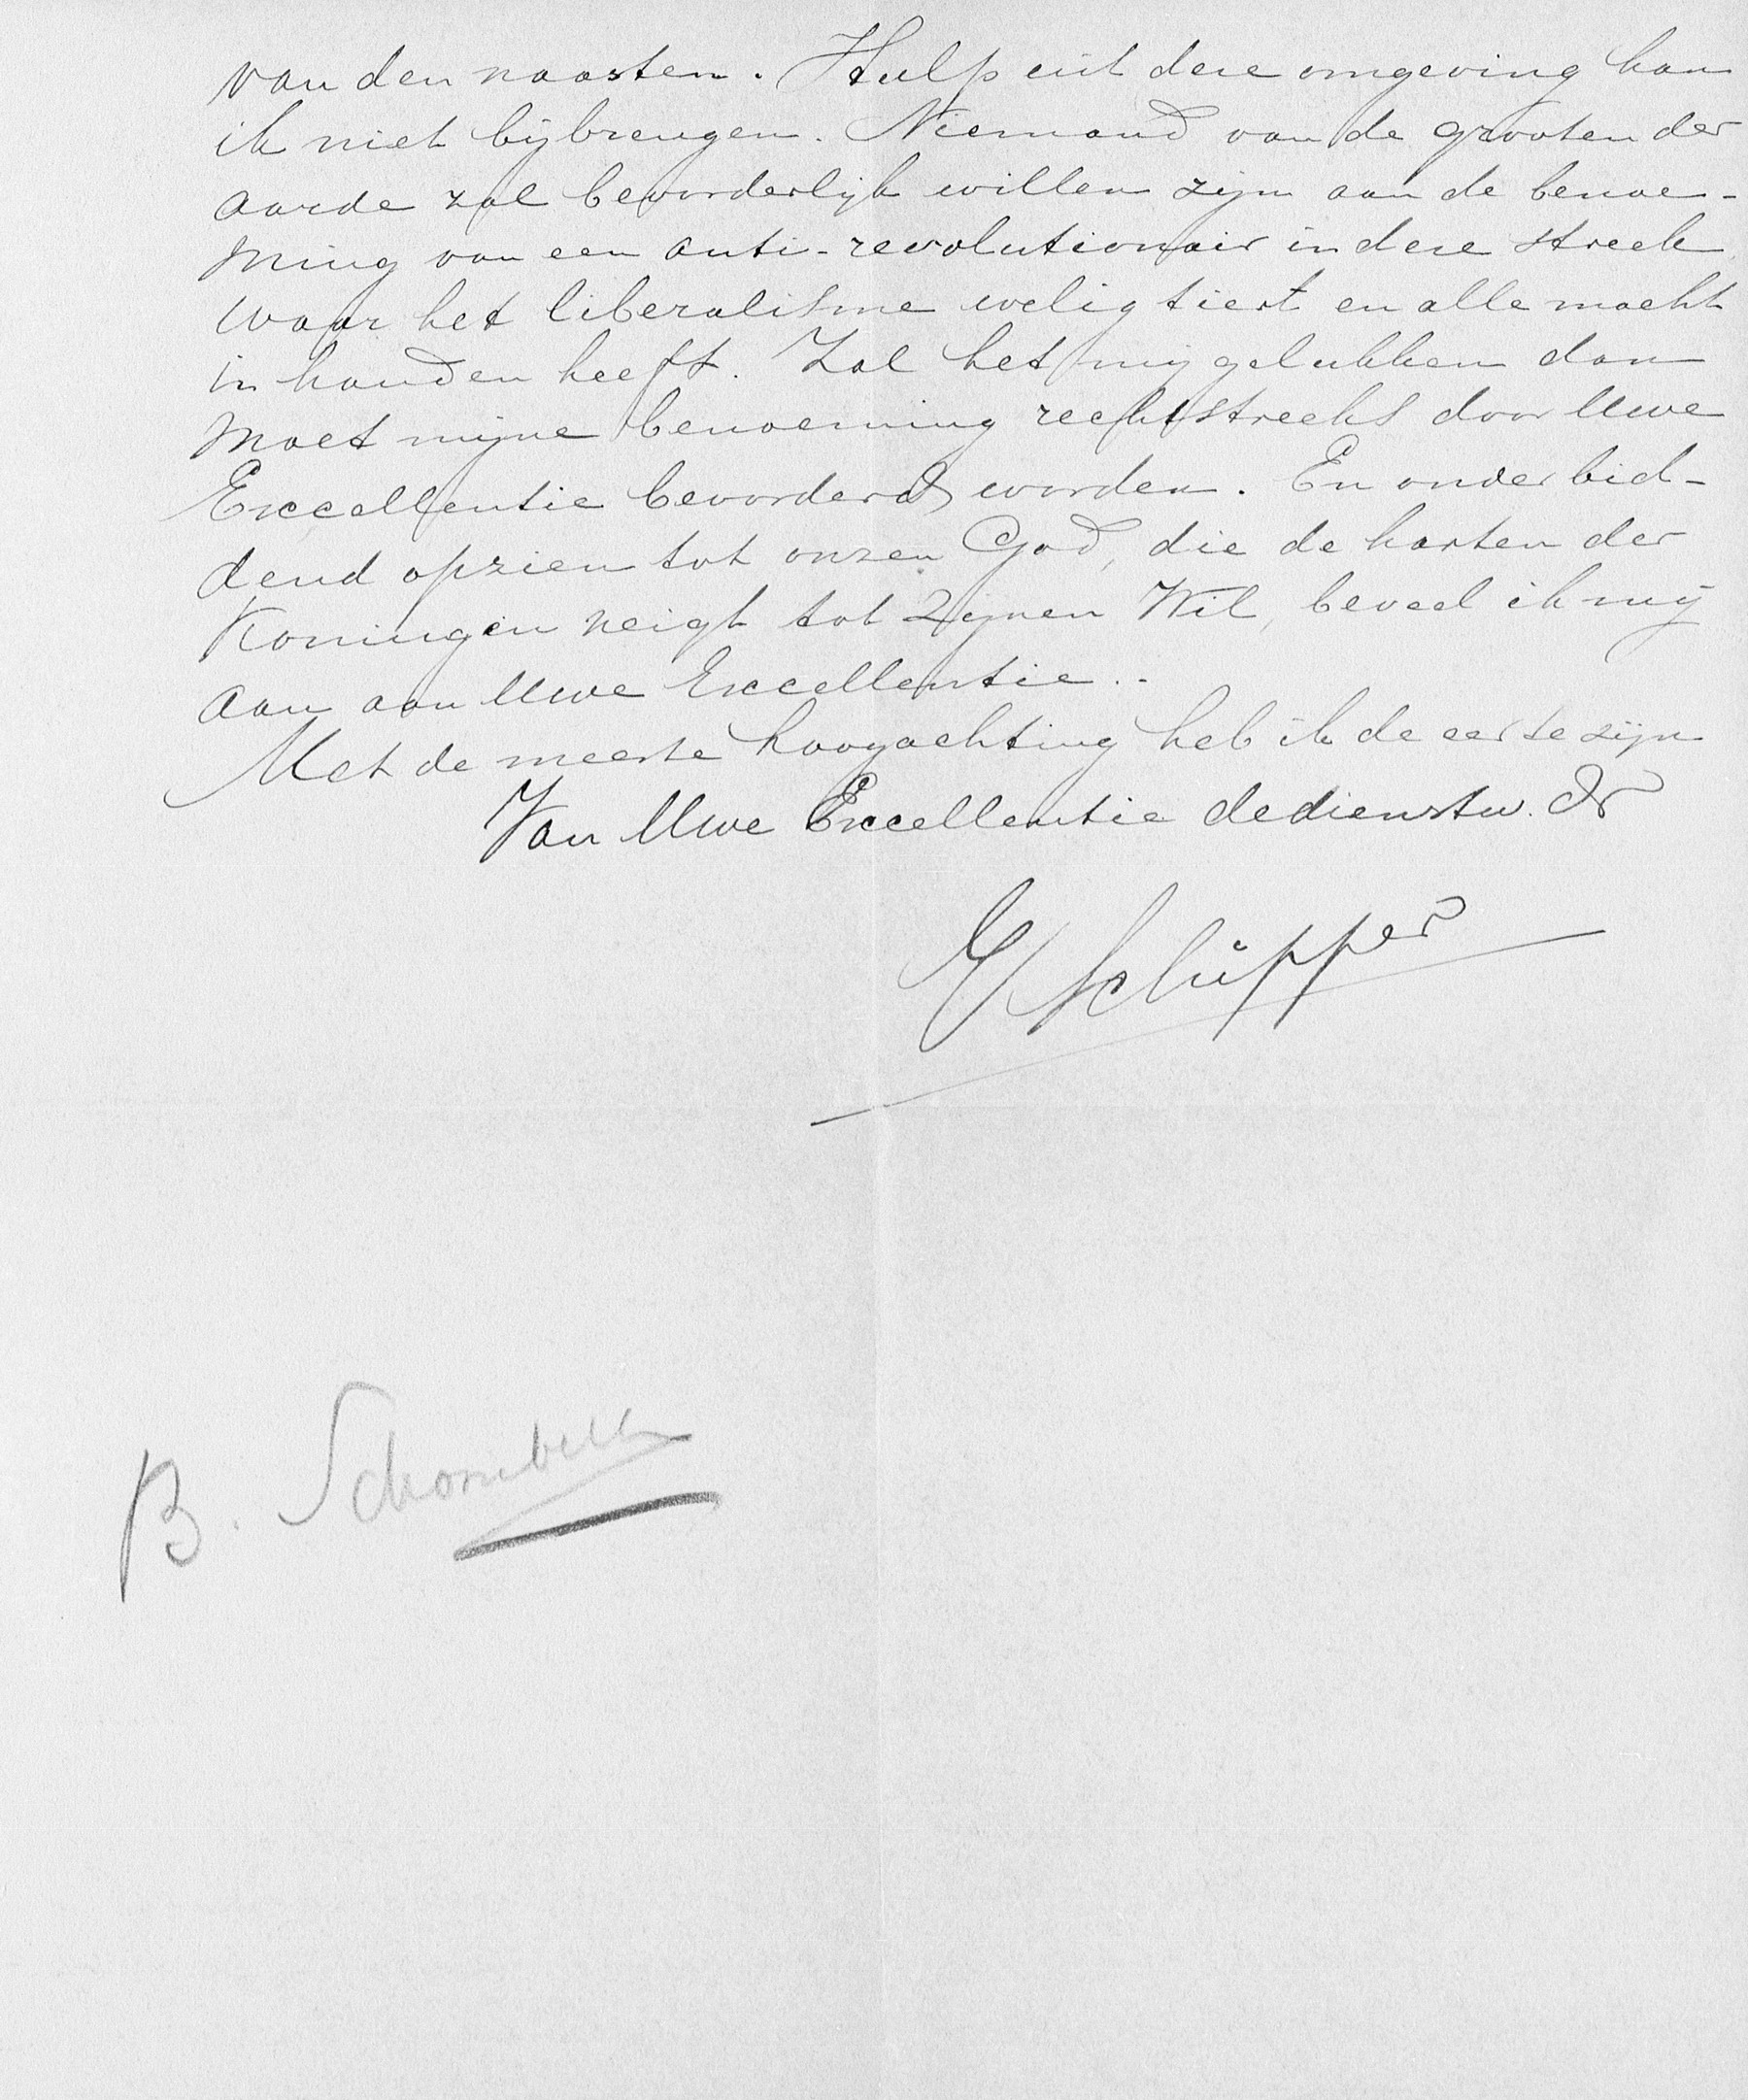 van den naasten. Hulp uit deze omgeving kan
ik niet bijbrengen. Niemand van de grooten der
aarde zal bevorderlijk willen zijn aan de benoe-
ming van een anti-revolutionair in deze streek
waar het liberalisme welig tiert en alle macht
in handen heeft. Zal het mij gelukken dan
moet mijne benoeming rechtstreeks door Uwe
Excellentie bevorderd worden. En onder bid-
dend opzien tot onzen God, die de harten der
Koningen neigt tot Zijnen Wil, beveel ik mij
aan aan Uwe Excellentie..
Met de meeste hoogachting heb ik de eer te zijn
Van Uwe Excellentie de dienstw. Dr
Schipper
B.